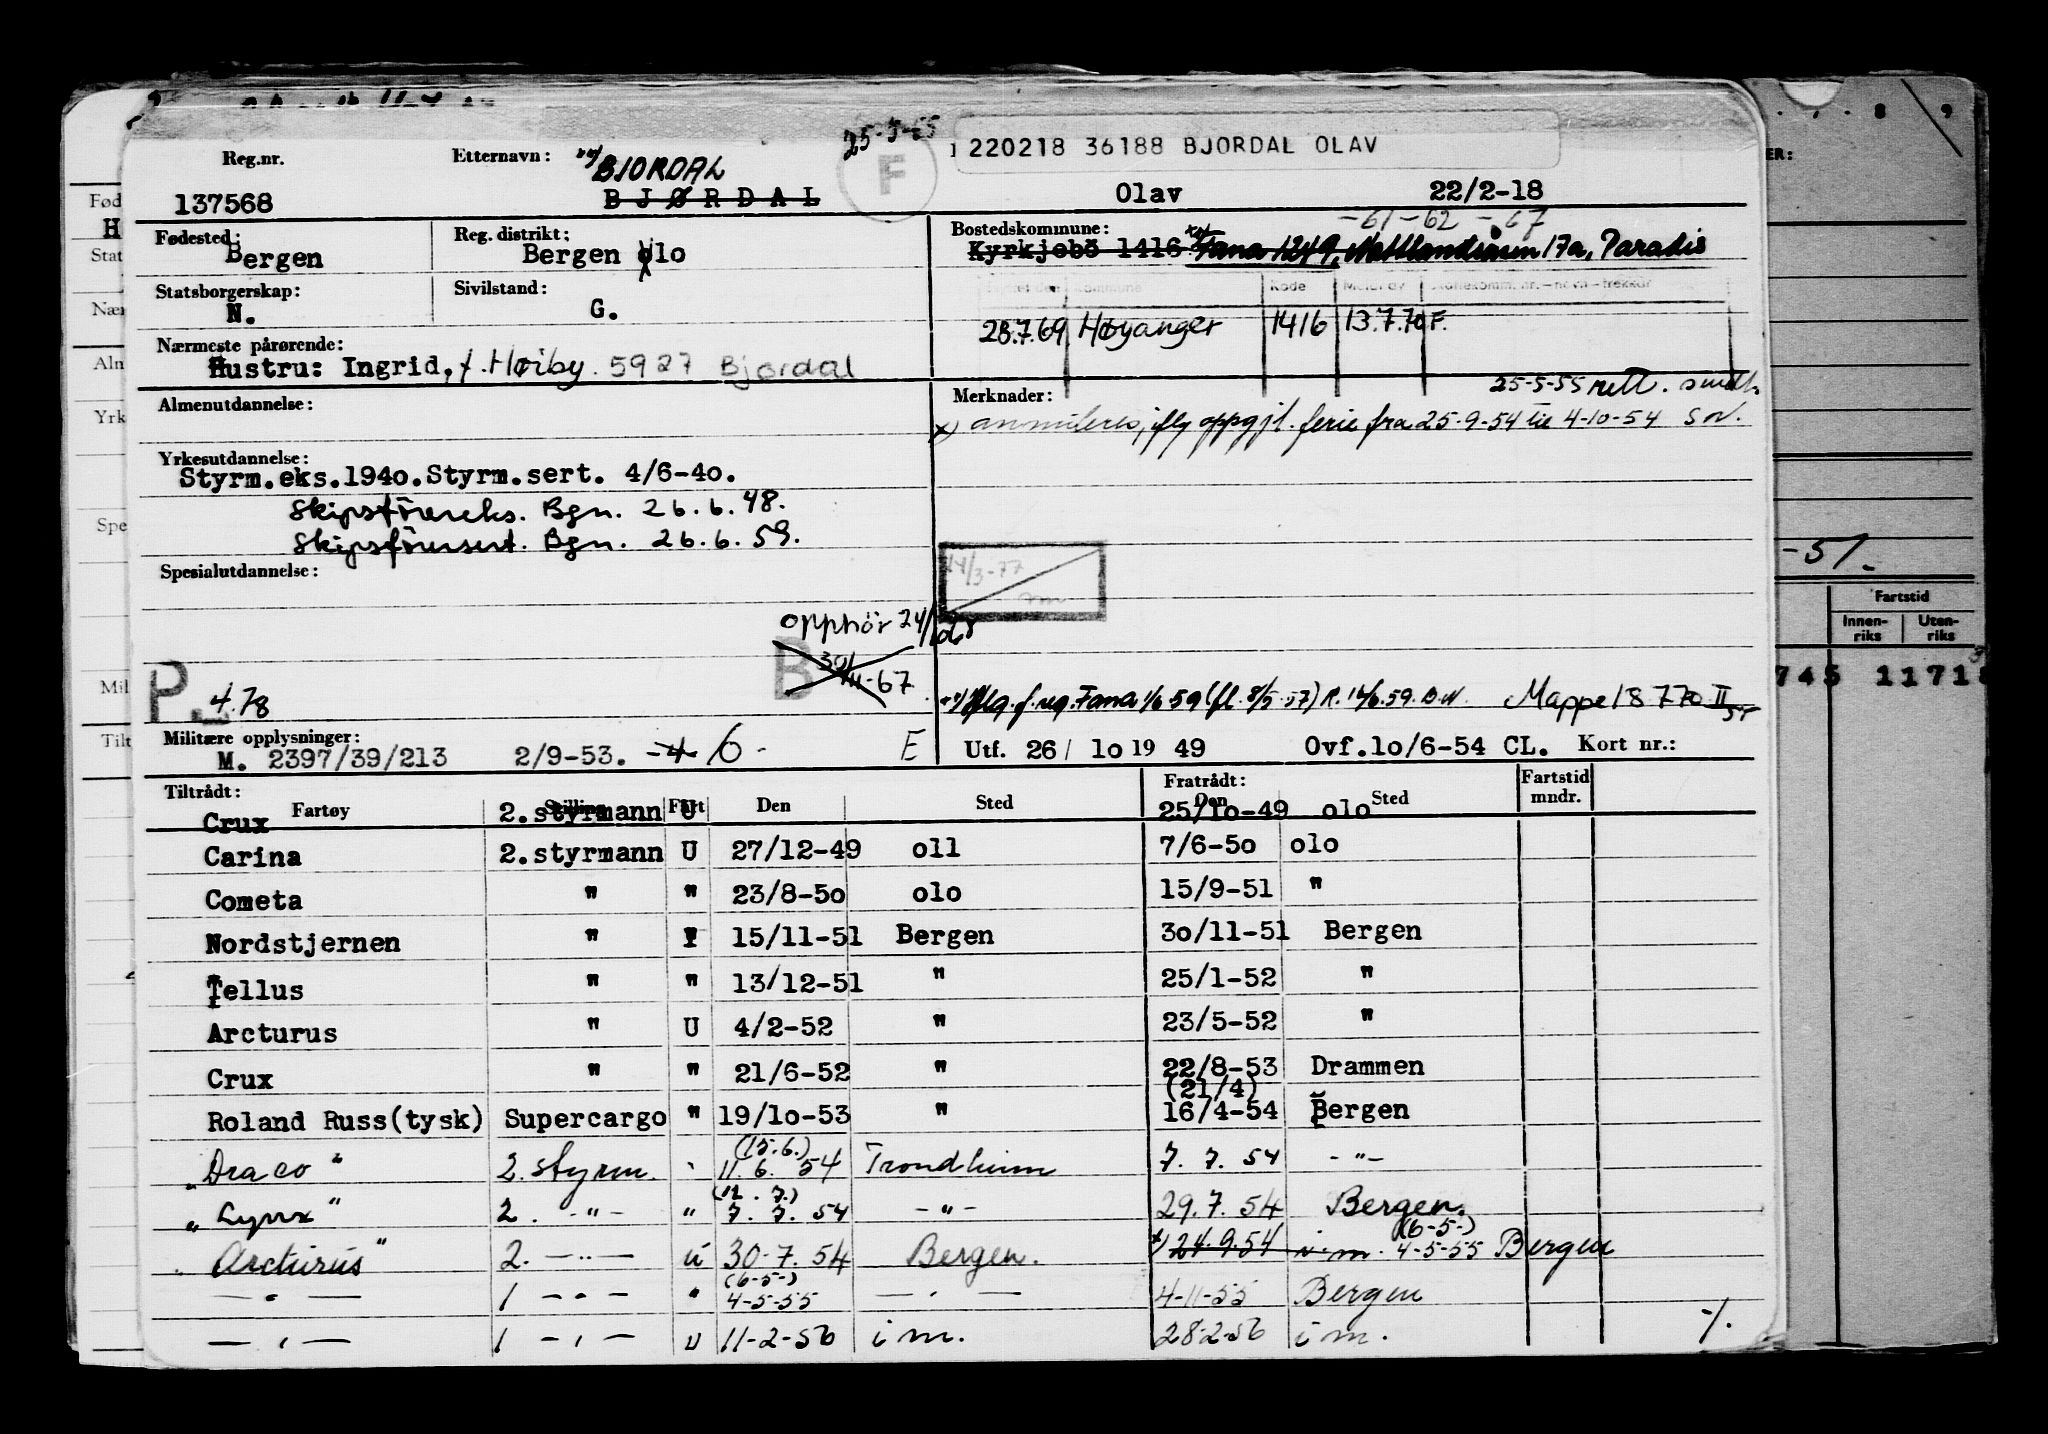 25-5-55
F
220218 36188 BJORDAL OLAV
Reg.nr. Etternavn: BJORDAL
137568 BJØRDAL Olav 22/2-18
-61-62-67
Fødested: Bergen Reg. distrikt: Bergen olo
Bostedskommune: Kyrkjebö 1416 Fana 1249, 17a, Paradis
Statsborgerskap: N. Sivilstand: G.
Kode
28.7.69 Høyanger 1416 13.7.70 F.
Nærmeste pårørende:
Hustru: Ingrid, f. Høiby. 5927 Bjordal
25-5-55 rett.
Almenutdannelse:
Merknader:
x) annuleres, iflg oppgjl. ferie fra 25-9-54 til 4-10-54
Yrkesutdannelse:
Styrm.eks.1940.Styrm.sert. 4/6-40.
Skipsförereks. Bgn. 26.6.48.
Skipsförersert. Bgn. 26.6.59.
Spesialutdannelse:
14/3-77
opphör 24/
B
-67
P.
4.78
iflg. f. reg. Fana 1/6 59 (fl. 8/5-57) R. 14/6.59. Mappe 18770 II
Militære opplysninger:
M. 2397/39/213 2/9-53. -4 6- E
Utf. 26/ 10 19 49 Ovf.lo/6-54 CL. Kort nr.:
Tiltrådt: Fratrådt:
Fartøy Stilling Fart Den Sted Den Sted Fartstid mndr.
Crux 2.styrmann U 25/lo-49 olo
Carina 2.styrmann U 27/12-49 oll 7/6-5o olo
Cometa " " 23/8-5o olo 15/9-51 "
Nordstjernen " I 15/11-51 Bergen 3o/11-51 Bergen
Tellus " " 13/12-51 " 25/1-52 "
Arcturus " U 4/2-52 " 23/5-52 "
Crux " " 21/6-52 " 22/8-53 Drammen
(21/4)
Roland Russ(tysk) Supercargo " 19/lo-53 " 16/4-54 Bergen
(15.6.)
"Draco" 2.styrm. " 11.6.54 Trondheim 7.7.54 -"-
(12.7.)
"Lynx" 2. -"- " 7.7.54 -"- 29.7.54 Bergen.
(6-5-)
"Arcturus" 2. -"- u 30-7.54 Bergen. x) 24.9.54 i.m. 4-5-55 Bergen
(6-5-)
-"- 1 -"- " 4-5-55 -"- 4-11-55 Bergen
-"- 1 -"- u 11-2-56 i m. 28-2-56 i m. -/.
Fød
H
Stat
Nær
Aln
Yrk
Spe
Mil
Tilt
8 9
ER:
-51.
Fartstid
Innen-riks Uten-riks
745 1171